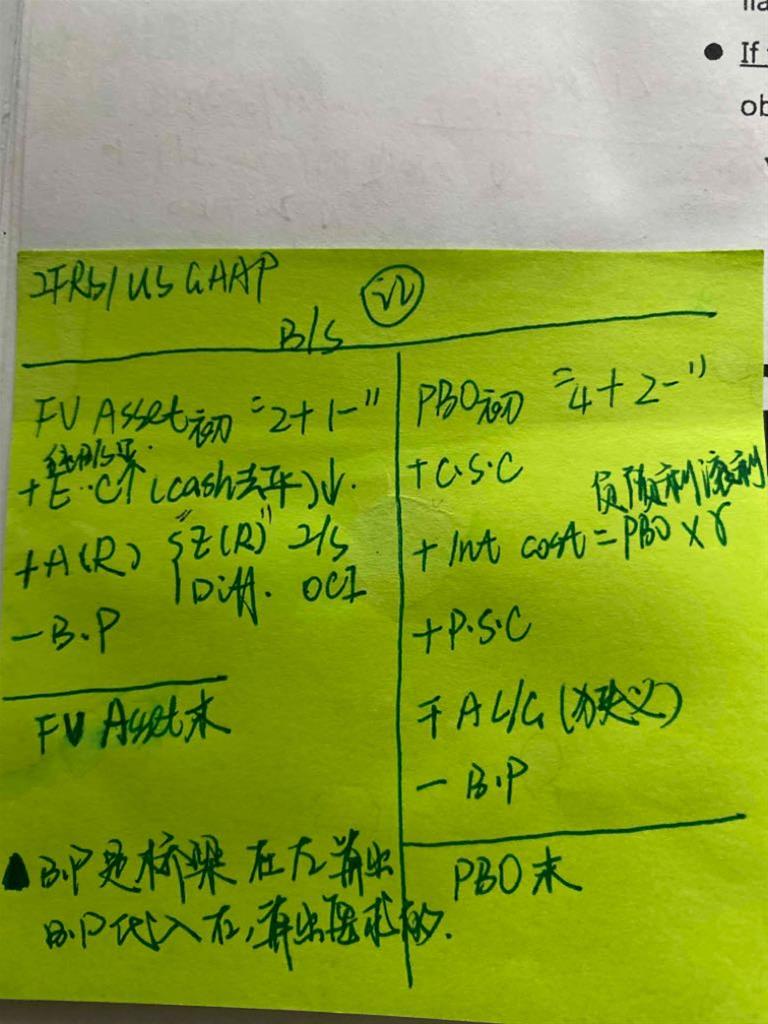 IFRS/US GAAP
记
B/S
FV Asset初 "2+1-"
+E.C↑(cash去平)↓.
+A(R) {E(R)" I/S
Diff. OCI
-B.P
FV Asset末
PBO初 "4+2-"
+C.S.C
负债利滚利
+Int cost=PBO×r
+P.S.C
∓AL/G(狭义)
-B.P
PBO末
▲B.P是桥梁 在左算出
B.P代入右,算出要求的.
If
ob